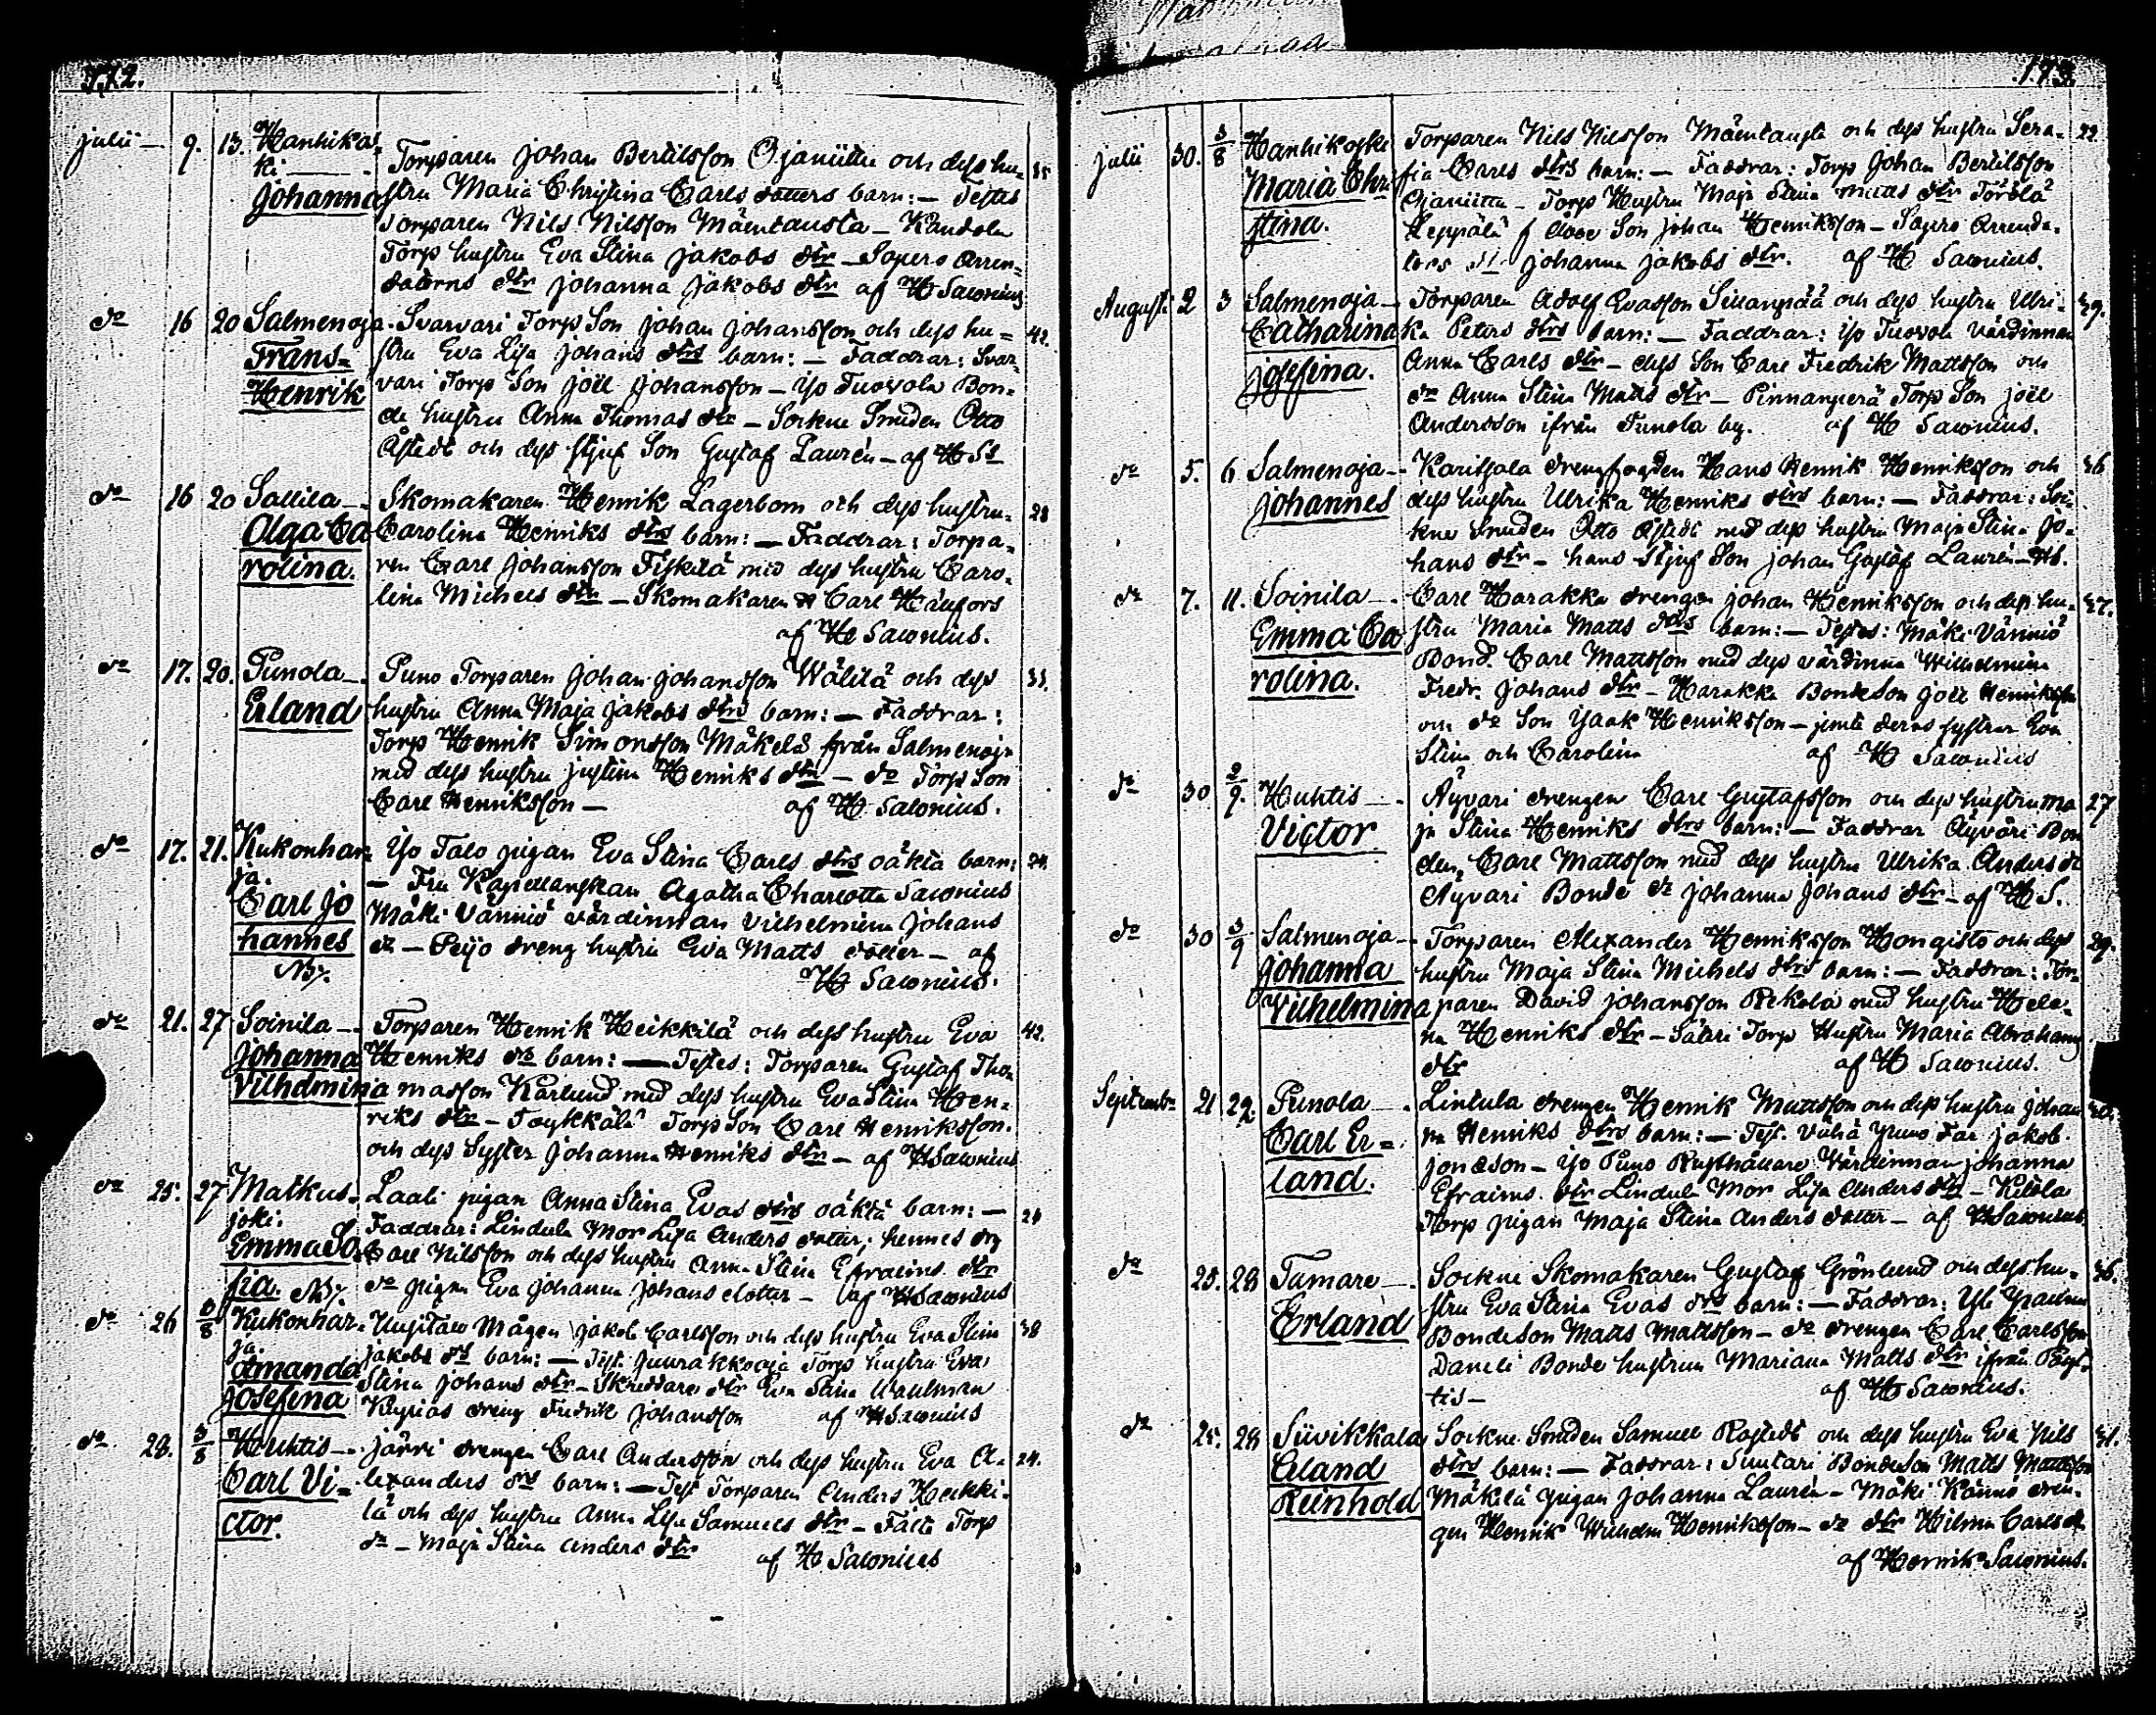 172.
julii — 9. 13. Hanhikos-
ki — Torparen Johan Bertilsson Ojaniittu och dess hu- 35
Johanna stru Maria Christina Carls dotters barn: — Testes
Torparen Nils Nilsson Mäentausta — Kandola
Torp hustru Eva Stina Jakobs dtr — Sopero Arren-
datorns dtr Johanna Jakobs dtr af H Salonius
do 16 20 Salmenoja - Svarvari Torp Son Johan Johansson och dess hu- 42.
Frans- stru Eva Lisa Johans dtrs barn: — Faddrar: Svar-
Henrik vari Torp Son Joël Johansson — Yso Tuovola Bon-
de hustru Anna Thomas dtr — Sockne Smeden Otto
Åstedt och dess stjuf Son Gustaf Laurén — af H Ss
do 16 20 Sallila — Skomakaren Henrik Lagerbom och dess hustru 28
Olga Ca Carolina Henriks dtrs barn: — Faddrar: Torpa-
rolina. ren Carl Johansson Fiskilä med dess hustru Caro-
lina Michels dtr — Skomakaren Carl Hänfors
af H Salonius.
do 17. 20. Punola — Puno Torparen Johan Johansson Wälilä och dess 33.
Erland hustru Anna Maja Jakobs dtrs barn: — Faddrar:
Torp Henrik Simonsson Mäkelä från Salmenoja
med dess hustru Justina Henriks dtr — do Torp Son
Carl Henriksson — af H Salonius.
do 17. 21. Kukonhar- Yso Talo pigan Eva Stina Carls dtrs oäkta barn: 24.
ja. — Fru Kapellanskan Agatha Charlotta Salonius
Carl Jo Mäki Vänniö värdinnan Vilhelmina Johans
hannes dr — Peijo dreng hustru Eva Matts dotter — af
NB. H Salonius.
do 21. 27 Soinila — Torparen Henrik Heikkilä och dess hustru Eva 42.
Johanna Henriks drs barn: — Testes: Torparen Gustaf Tho-
Vilhelmina masson Karlund med dess hustru Eva Stina Hen-
riks dtr — Torp Son Carl Henriksson.
och dess Syster Johanna Henriks dtr — af H Salonius
do 25. 27 Matkus- Laali pigan Anna Stina Evas dtrs oäkta barn: — 24
joki. Faddrar: Lindula Mor Lisa Anders dotter; hennes
Emma So- Carl Nilsson och dess hustru Anna Stina Efraims dtr
fia. NB. do pigan Eva Johanna Johans dotter — af H Salonius
do 26 3/8 Kukonhar- Uusitalo Mågen Jakob Carlsson och dess hustru Eva Stina 38
ja. Jakobs drs barn: — Test. Juurakkooja Torp hustru Eva
Amanda Stina Johans dtr — Skreddare dtr Eva Stina Wahlman
Josefina dreng Fredrik Johansson af H Salonius
do 28. 3/8 Huhtis — Järvi drengen Carl Andersson och dess hustru Eva A- 24.
Carl Vi- lexanders drs barn: — Test Torparen Anders Heikki-
ctor. lä och dess hustru Anna Lisa Samuels dtr — Torp
dr — Maja Stina Anders dtr af H Salonius
173.
julii 30. 3/8 Hanhikoski Torparen Nils Nilsson Mäentausta och dess hustru Sera- 22.
Maria Chri fia Carls dtrs barn: — Faddrar: Torp Johan Bertilsson
stina. Ojaniittu — Torp Hustru Maja Stina Matts dtr
Leppälä Son Johan Henriksson — Sopero Arrenda-
tors Johanna Jakobs dtr. af H Salonius.
Augusti 2 3 Salmenoja — Torparen Adolf Evasson Sillanpää och dess hustru Ulri- 29.
Catharina ka Peters dtrs barn: — Faddrar: Yso Tuovola Värdinnan
Josefina. Anna Carls dtr — dess Son Carl Fredrik Mattsson och
dr Anna Stina Matts dtr — Pinnanperä Torp Son Joël
Andersson ifrån Punola by. af H Salonius.
do 5. 6 Salmenoja — Karitsala drengfogden Hans Henrik Henriksson och 36
Johannes dess hustru Ulrika Henriks dtrs barn: — Faddrar: Soc-
kne Smeden Otto Åstedt med dess hustru Maja Stina Jo-
hans dtr — hans Stjuf Son Johan Gustaf Laurén — HS.
do 7. 11. Soinila — Carl Harakka drengen Johan Henriksson och dess hu- 27.
Emma Ca stru Maria Matts dtrs barn: — Testes: Mäki Vänniö
rolina. Bond. Carl Mattsson med dess värdinna Wilhelmina
Fredr. Johans dtr — Harakka Bonde Son Joël Henriksson
och do Son Isaak Henriksson — jemte deras systrar Eva
Stina och Carolina af H Salonius
do 30 2/9. Huhtis — Äyväri drengen Carl Gustafsson och dess hustru Ma 27
Victor ja Stina Henriks dtrs barn: — Faddrar Äyväri Bon
den Carl Mattsson med dess hustru Ulrika Anders dr
Äyväri Bonde dr Johanna Johans dtr — af H S.
do 30 3/9 Salmenoja — Torparen Alexander Henriksson Hongisto och dess 29.
Johanna hustru Maja Stina Michels dtrs barn: — Faddrar: Tor-
Vilhelmina paren David Johansson Rekola med hustru Hele-
na Henriks dtr — Säteri Torp Hustru Maria Abrahams
dtr af H Salonius.
Septembr 21 22. Punola — Lintula drengen Henrik Mattsson och dess hustru Johan
Carl Er- na Henriks dtrs barn: — Test. Vähä puno Far Jakob
land. Jonæson — Yso Puno Rusthållare Värdinnan Johanna
Efraims dtr Lindula Mor Lisa Anders dtr — Kitola
Torp pigan Maja Stina Anders dotter — af H Salonius
do 25. 28 Tamare — Sockne Skomakaren Gustaf Grönlund och dess hu- 36.
Erland stru Eva Stina Evas drs barn: — Faddrar: Yli
Bondeson Matts Mattsson — do drengen Carl Carlsson
Daneli Bonde hustrun Mariana Matts dtr ifrån Pöyt-
tis — af H Salonius.
do 25. 28 Siivikkala Sockne Smeden Samuel Rostedt och dess hustru Eva Nils 31.
Erland dtrs barn: — Faddrar: Suutari Bondeson Matts Mattsson
Reinhold Mäkilä pigan Johanna Laurén — Mäki Kännö dren-
gen Henrik Wilhelm Henriksson — do dtr Hilma Carls dr
af Henrik Salonius.